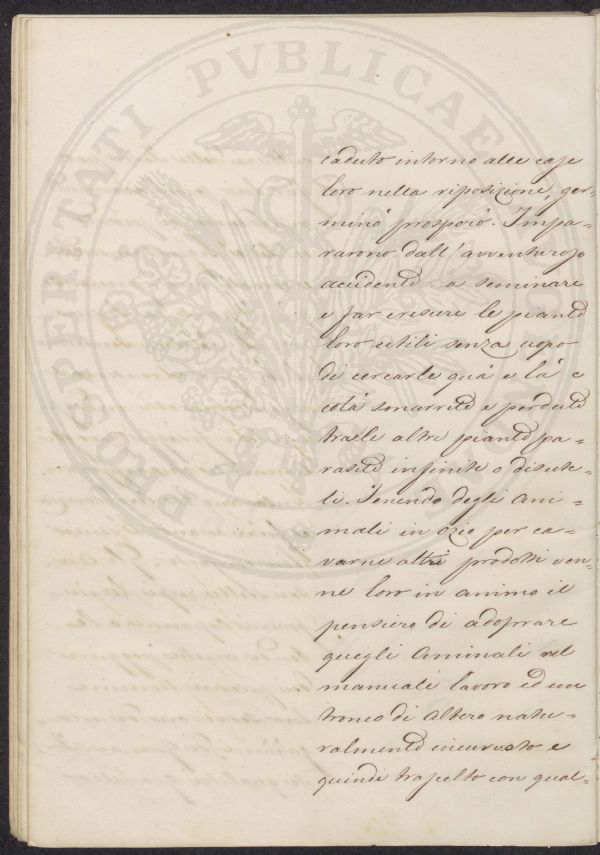 PROSPERITATI PVBLICAE
caduto intorno alle case
loro nella riposizione, ger-
minó prosperó. Impa-
rarono dall'avventuroso
accidente a seminare
e far crescere le piante
loro utili senza uopo
di cercarle quá e lá e
colá smarrite e perdute
tralle altre piante pa-
rasite infinite o disute-
li. Tenendo degli Ani-
mali in ozio per ca-
varne altri prodotti ven-
ne loro in animo il
pensiero di adoprare
quegli Animali nel
manuali lavoro ed un
tronco di Albero natu-
ralmente incurvato e
quindi trascelto con qual-